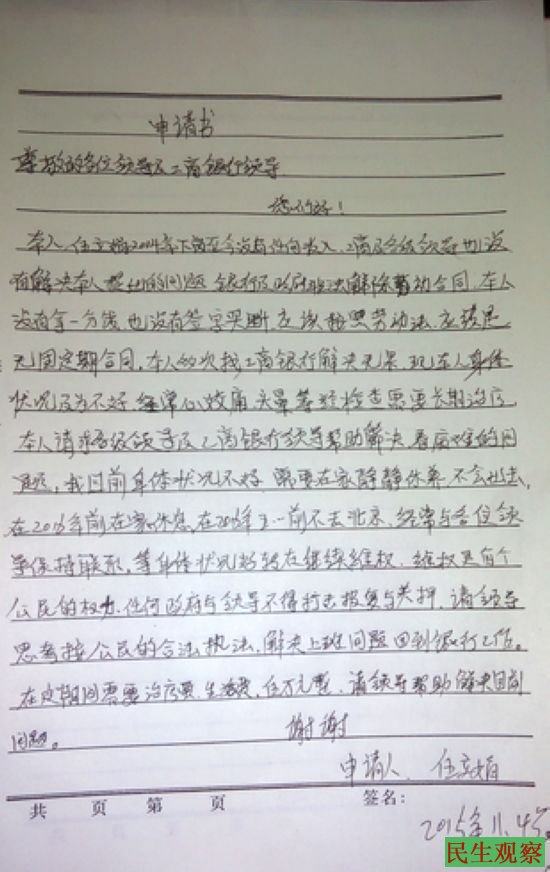 申请书
尊敬的各位领导及工商银行领导
您们好！
本人，任立娟2004年下岗至今没有任何收入，工商及各级领导也没
有解决本人提出的问题，银行及政府取决解除劳动合同，本人
没有拿一分钱，也没有签字买断，应该按照劳动法，应转
无固定期合同，本人多次找工商银行解决无果，现本人身体
状况及为不好，经常心绞痛，头晕等经检查需要长期治疗
本人请求各级领导及工商银行领导帮助解决看病的问
题，我目前身体状况不好，需要在家静静休养，不会出去，
在2016年前在家休息，在2016年五一前不去北京，经常与各位领
导保持联系，等身体状况好转在继续维权，维权是每个
公民的权力，任何政府与领导不得打击报复与关押，请领导
思考按公民的合法执法，解决上班问题回到银行工作。
在定期间需要治疗费，生活费，任万元整，请领导帮助解决目前
问题。
谢谢
申请人 任立娟
共 页 第 页 签名：
2015年11.4号
民生观察